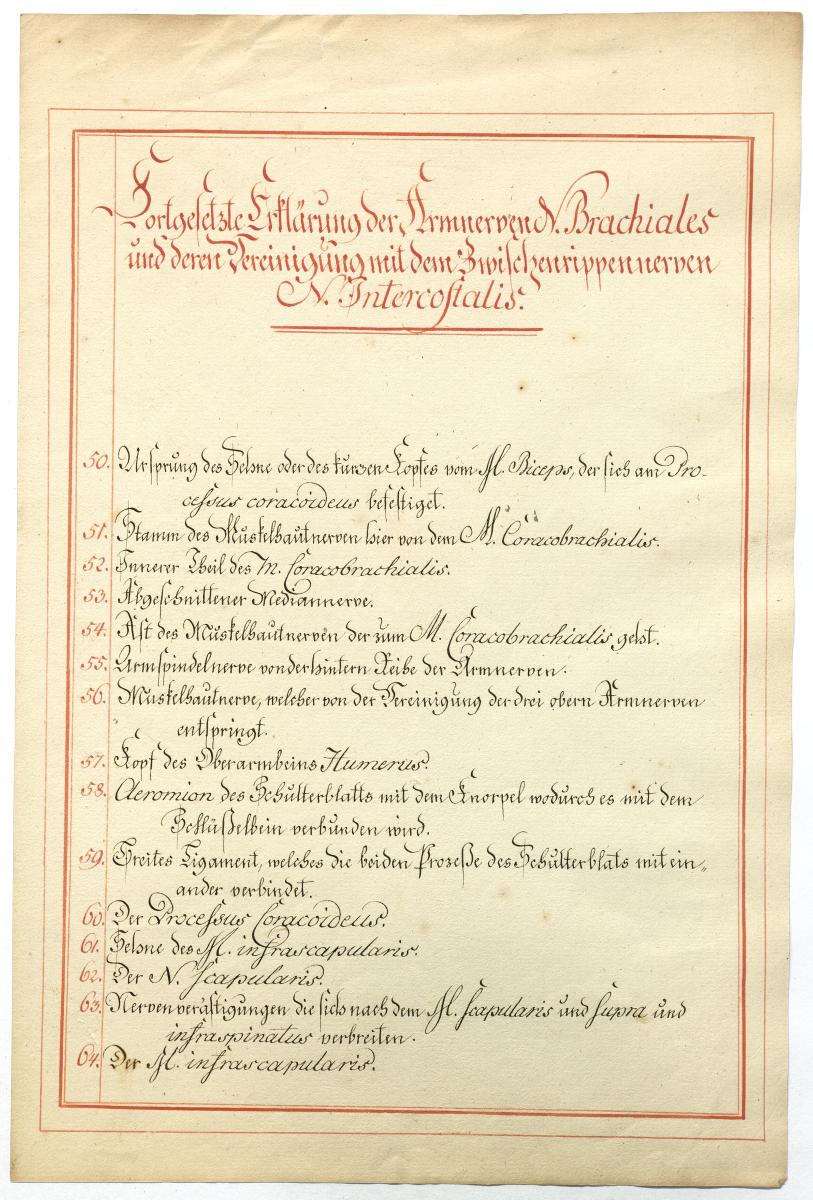 Fortgesetzte Erklärung der Armnerven N. Brachiales
und deren Vereinigung mit dem Zwischenrippennerven
N. Intercostalis.
50. Ursprung des Sehne oder des kurzen Kopfes vom M. Biceps, der sich am Pro-
cessus coracoideus befestiget.
51. Stamm des Muskelhautnerven hier von dem M. Coracobrachialis.
52. Innerer Theil des M. Coracobrachialis.
53. Abgeschnittener Mediannerve.
54. Ast des Muskelhautnerven der zum M. Coracobrachialis geht.
55. Armspindelnerve von der hintern Reihe der Armnerven.
56. Muskelhautnerve, welcher von der Vereinigung der drei obern Armnerven
entspringt.
57. Kopf des Oberarmbeins Humerus.
58. Acromion des Schulterblatts mit dem Knorpel wodurch es mit dem
Schlüßelbein verbunden wird.
59. Breites Ligament, welches die beiden Prozeße des Schulterblats mit ein„
ander verbindet.
60. Der Processus Coracoideus.
61. Sehne des M. infrascapularis.
62. Der N. scapularis.
63. Nervenverästigungen die sich nach dem M. scapularis und supra und
infraspinatus verbreiten.
64. Der M. infrascapularis.